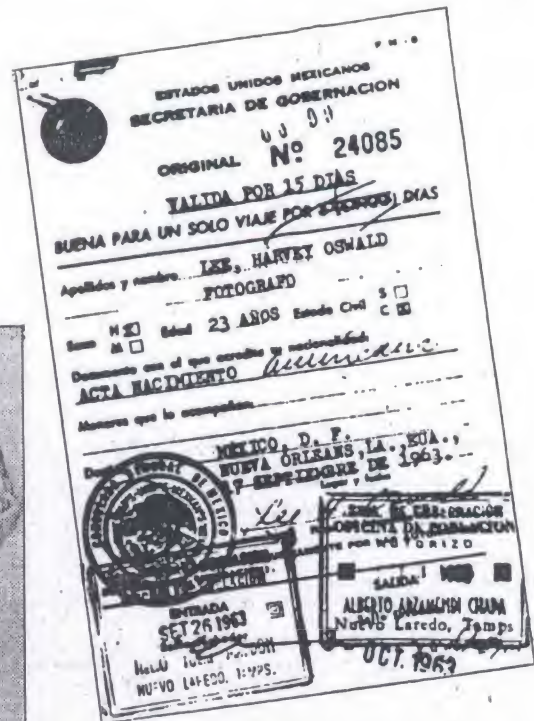 F M - 8
ESTADOS UNIDOS MEXICANOS
SECRETARIA DE GOBERNACION
ORIGINAL Nº 24085
VALIDA POR 15 DIAS
BUENA PARA UN SOLO VIAJE POR DIAS
Apellidos y nombre LEE, HARVEY OSWALD
FOTOGRAFO
Sexo H M Edad 23 AÑOS Estado Civil S C
Documento con el que acredita su nacionalidad:
ACTA NACIMIENTO
Menores que lo acompañan
MEXICO, D. F.
NUEVA ORLEANS, LA., EUA.,
17 SEPTIEMBRE DE 1963.-
Lugar y fecha
Lee
OFICINA DE POBLACION
SALIDA
ENTRADA
SET 26 1963
NUEVO LAREDO, TAMPS.
ALBERTO ARZAMENDI CHAPA
Nuevo Laredo, Tamps
OCT. 1963